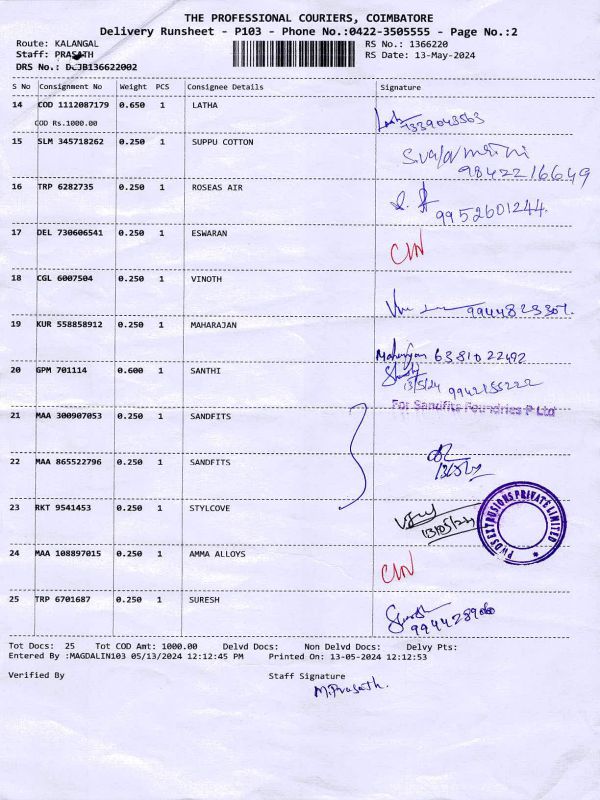 THE PROFESSIONAL COURIERS, COIMBATORE
Delivery Runsheet - P103 - Phone No.:0422-3505555 - Page No.:2
Route: KALANGAL RS No.: 1366220
Staff: PRASATH RS Date: 13-May-2024
DRS No.: 136622002
S No Consignment No Weight PCS Consignee Details Signature
14 COD 1112087179 0.650 1 LATHA
COD Rs.1000.00 7339043563
15 SLM 345718262 0.250 1 SUPPU COTTON
9842216649
16 TRP 6282735 0.250 1 ROSEAS AIR
9952601244
17 DEL 730606541 0.250 1 ESWARAN
18 CGL 6007504 0.250 1 VINOTH
19 KUR 558858912 0.250 1 MAHARAJAN
6381022492
20 GPM 701114 0.600 1 SANTHI
13/5/24 9942155222
For Sandfits Foundries P Ltd
21 MAA 300907053 0.250 1 SANDFITS
22 MAA 865522796 0.250 1 SANDFITS
23 RKT 9541453 0.250 1 STYLCOVE
13/05/24
EXTRUSIONS PRIVATE LIMITED
24 MAA 108897015 0.250 1 AMMA ALLOYS
25 TRP 6701687 0.250 1 SURESH
Tot Docs: 25 Tot COD Amt: 1000.00 Delvd Docs: Non Delvd Docs: Delvy Pts:
Entered By :MAGDALIN103 05/13/2024 12:12:45 PM Printed On: 13-05-2024 12:12:53
Verified By Staff Signature
M.Prasath.